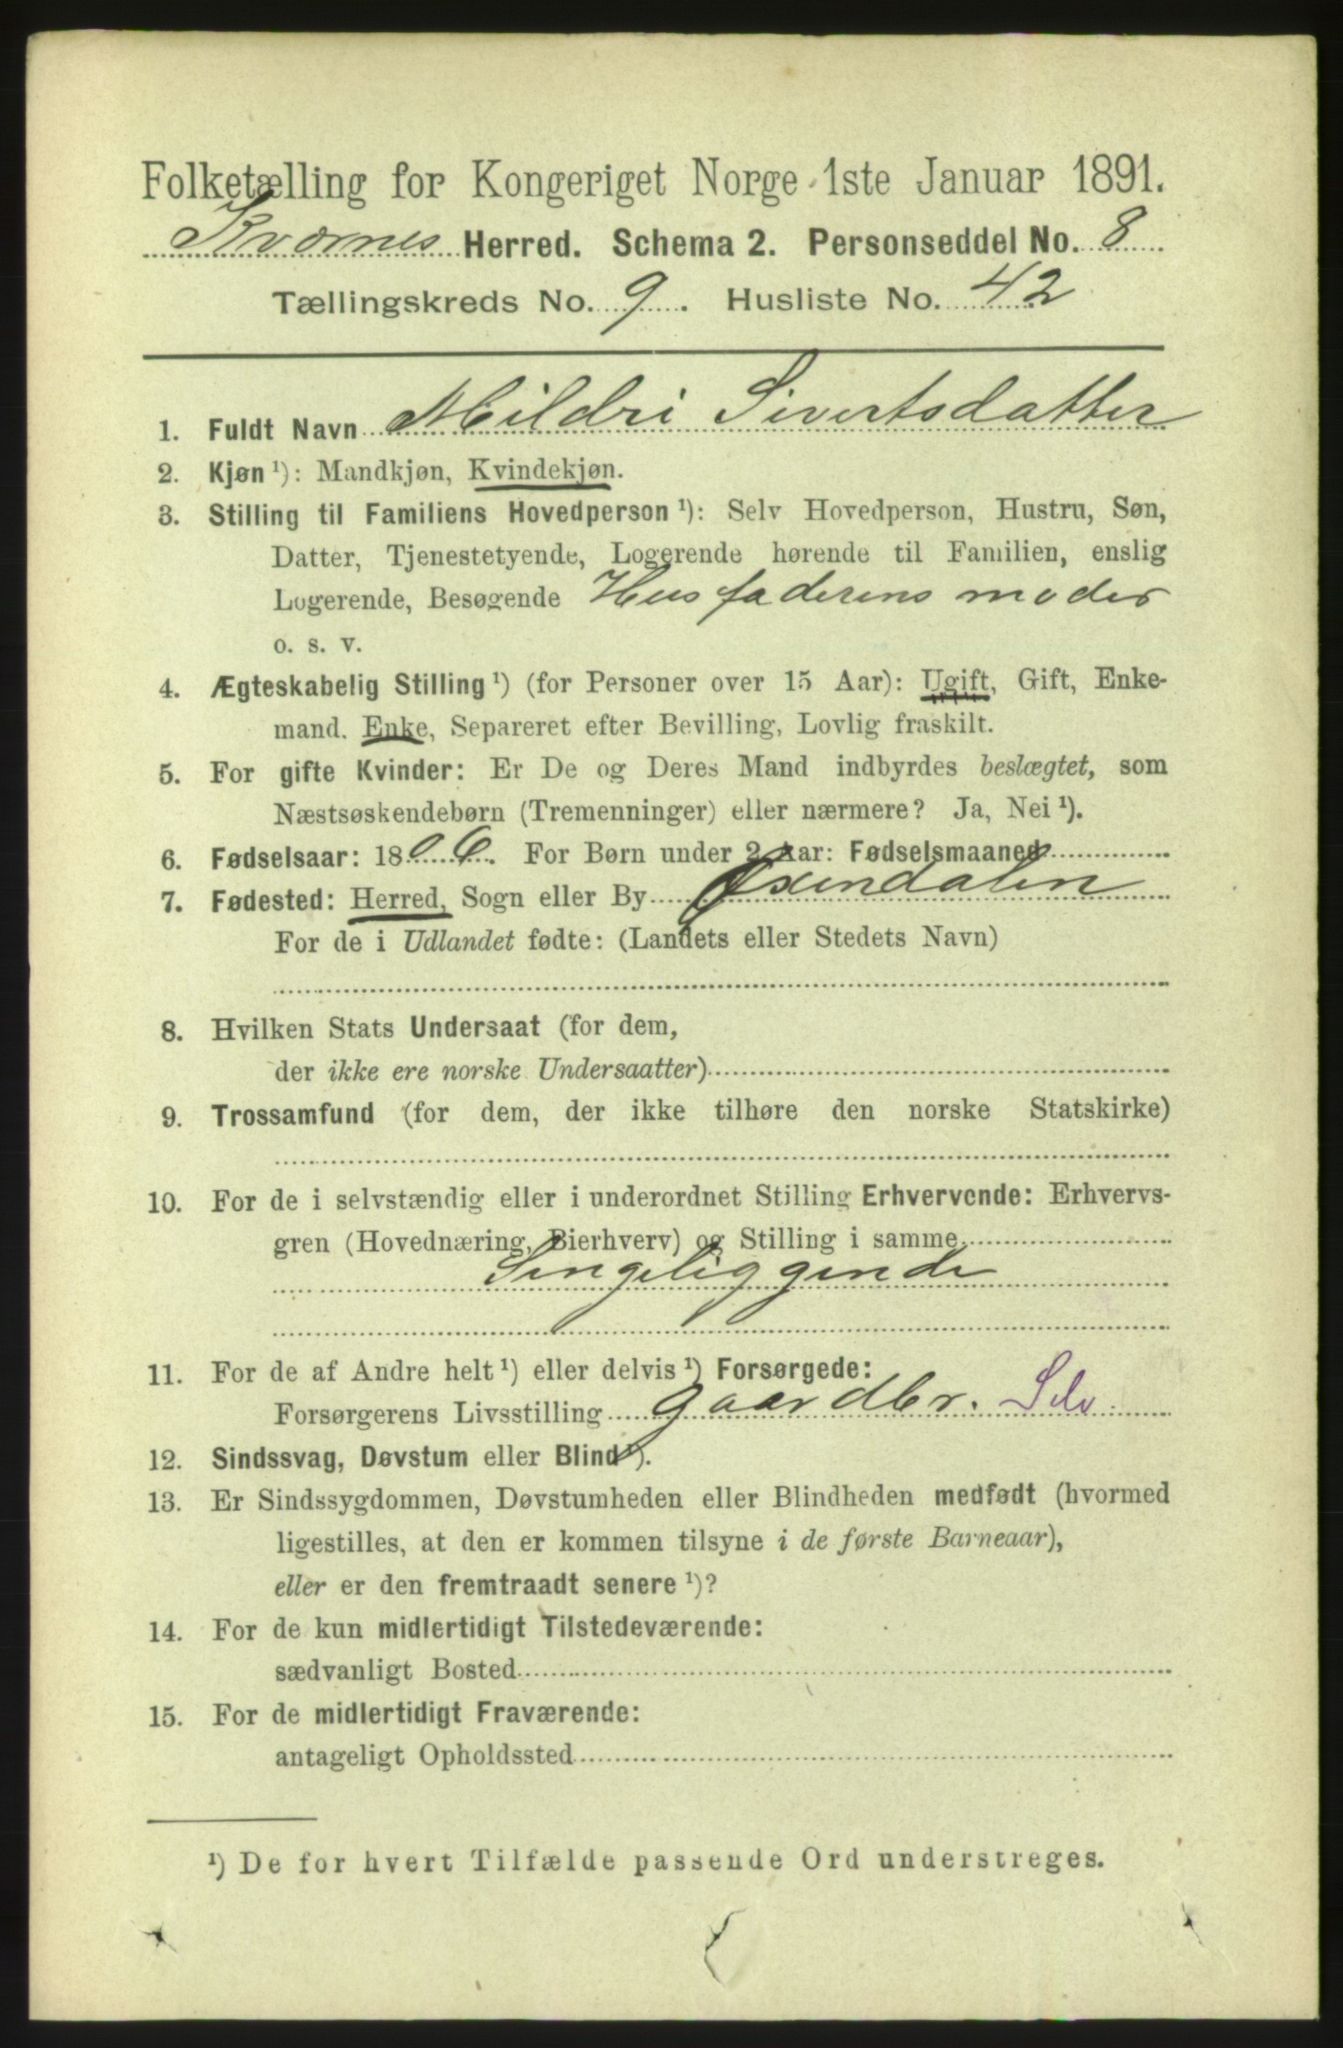 Folketælling for Kongeriget Norge 1ste Januar 1891.
Kvernes Herred. Schema 2. Personseddel No. 8
Tællingskreds No. 9. Husliste No. 42
1. Fuldt Navn Mildri Sivertsdatter
2. Kjøn¹): Mandkjøn, Kvindekjøn.
3. Stilling til Familiens Hovedperson¹): Selv Hovedperson, Hustru, Søn,
Datter, Tjenestetyende, Logerende hørende til Familien, enslig
Logerende, Besøgende Husfaderens moder
o. s. v.
4. Ægteskabelig Stilling¹) (for Personer over 15 Aar): Ugift, Gift, Enke-
mand. Enke, Separeret efter Bevilling, Lovlig fraskilt.
5. For gifte Kvinder: Er De og Deres Mand indbyrdes beslægtet, som
Næstsøskendebørn (Tremenninger) eller nærmere? Ja, Nei¹).
6. Fødselsaar: 1806. For Børn under 2 Aar: Fødselsmaaned
7. Fødested: Herred, Sogn eller By Øxendalen
For de i Udlandet fødte: (Landets eller Stedets Navn)
8. Hvilken Stats Undersaat (for dem,
der ikke ere norske Undersaatter)
9. Trossamfund (for dem, der ikke tilhøre den norske Statskirke)
10. For de i selvstændig eller i underordnet Stilling Erhvervende: Erhvervs-
gren (Hovednæring, Bierhverv) og Stilling i samme
Sengeliggende
11. For de af Andre helt¹) eller delvis¹) Forsørgede:
Forsørgerens Livsstilling gaardbr. Selv
12. Sindssvag, Døvstum eller Blind¹).
13. Er Sindssygdommen, Døvstumheden eller Blindheden medfødt (hvormed
ligestilles, at den er kommen tilsyne i de første Barneaar),
eller er den fremtraadt senere¹)?
14. For de kun midlertidigt Tilstedeværende:
sædvanligt Bosted
15. For de midlertidigt Fraværende:
antageligt Opholdssted
¹) De for hvert Tilfælde passende Ord understreges.